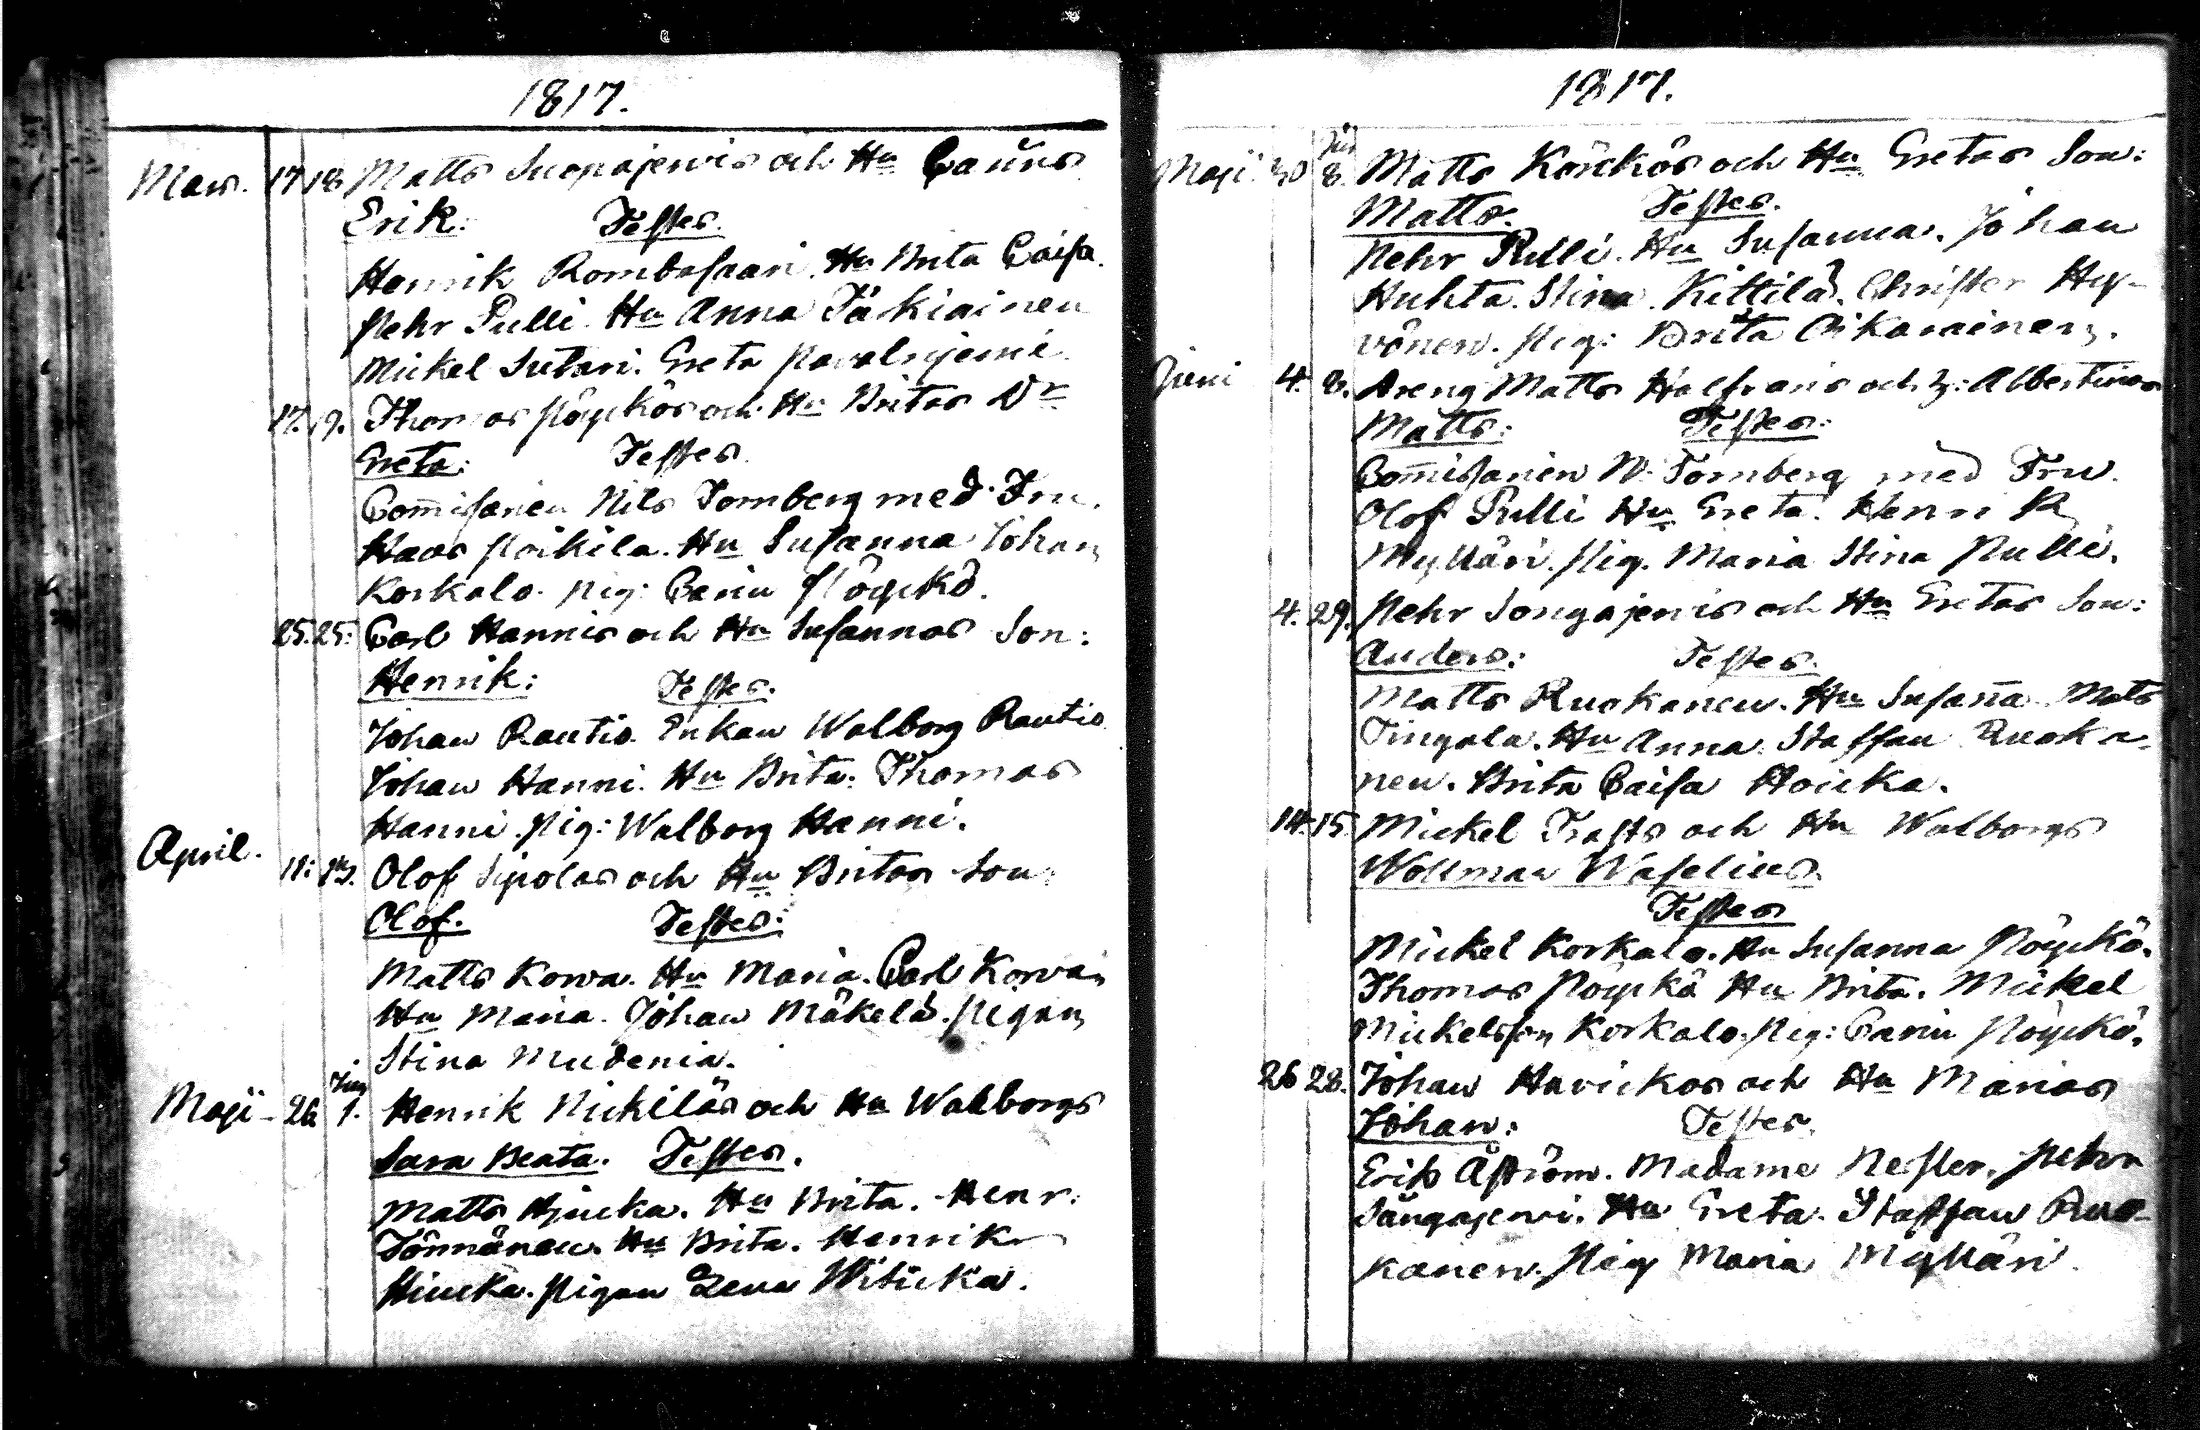 1817.
Mars. 17 18 Matts Suopajerwis och Hu Carins
Erik: Testes.
Henrik Rombasaari. Hu Brita Caisa.
Pehr Pulli. Hu Anna Täkiainen
Mickel Sutari. Greta Pavalnjemi.
17. 19. Thomas Pöyckös och Hu Britas Dr
Greta: Testes.
Com̄isarien Nils Fornberg med Fru.
Haas Poikila. Hu Susanna Johan
Korkalo. Pig: Carin Pöyckö.
25. 25: Carl Hannis och Hu Susannas Son:
Henrik: Testes.
Johan Rautio. Enkan Walborg Rautio
Johan Hanni. Hu Brita. Thomas
Hanni. Pig: Walborg Hanni.
April. 11: 13. Olof Sipolas och Hu Britas Son:
Olof. Testes:
Matts Korva. Hu Maria. Carl Korva
Hu Maria. Johan Mäkelä. Pigan
Stina Mudenia.
Maji - 26 Jun 1. Henrik Nickiläs och Hu Walborgs
Sara Beata. Testes.
Matts Hiucka. Hu Brita. Henr:
Tönnänen. Hu Brita. Henrik
Hiucka. Pigan Lena Witicka.
1817.
Maji 30 Jun 8. Matts Korckos och Hu Gretas Son:
Matts. Testes.
Pehr Pulli. Hu Susanna. Johan
Huhta. Stina Kittilä. Christer Hy-
vönen. Pig: Brita Oikarainen.
Juni 4. 8. Dreng Matts Halfvaris och h: Albertinas
Matts: Testes:
Com̄isarien N. Fornberg med Fru.
Olof Pulli Hu Greta. Henrik
Mylläri. Pig. Maria Stina Pulli.
4. 29. Pehr Songajerwis och Hu Gretas Son:
Anders: Testes.
Matts Ruokanen. Hu Susan̄a Mats
Tingala. Hu Anna. Staffan Ruoka-
nen. Brita Caisa Hoicka.
14. 15 Mickel Trasts och Hu Walborgs
Wollmar Waselius.
Testes
Mickel Korkalo. Hu Susanna Pöyckö.
Thomas Pöyckö Hu Brita. Mickel
Mickelsson Korkalo. Pig: Carin Pöyckö.
26 28. Johan Havickos och Hu Marias
Johan: Testes.
Erik Åström. Madame Nesler. Pehr
Sångajerwi. Hu Greta. Staffan Ruo-
kanen. Pig Maria Mylläri.